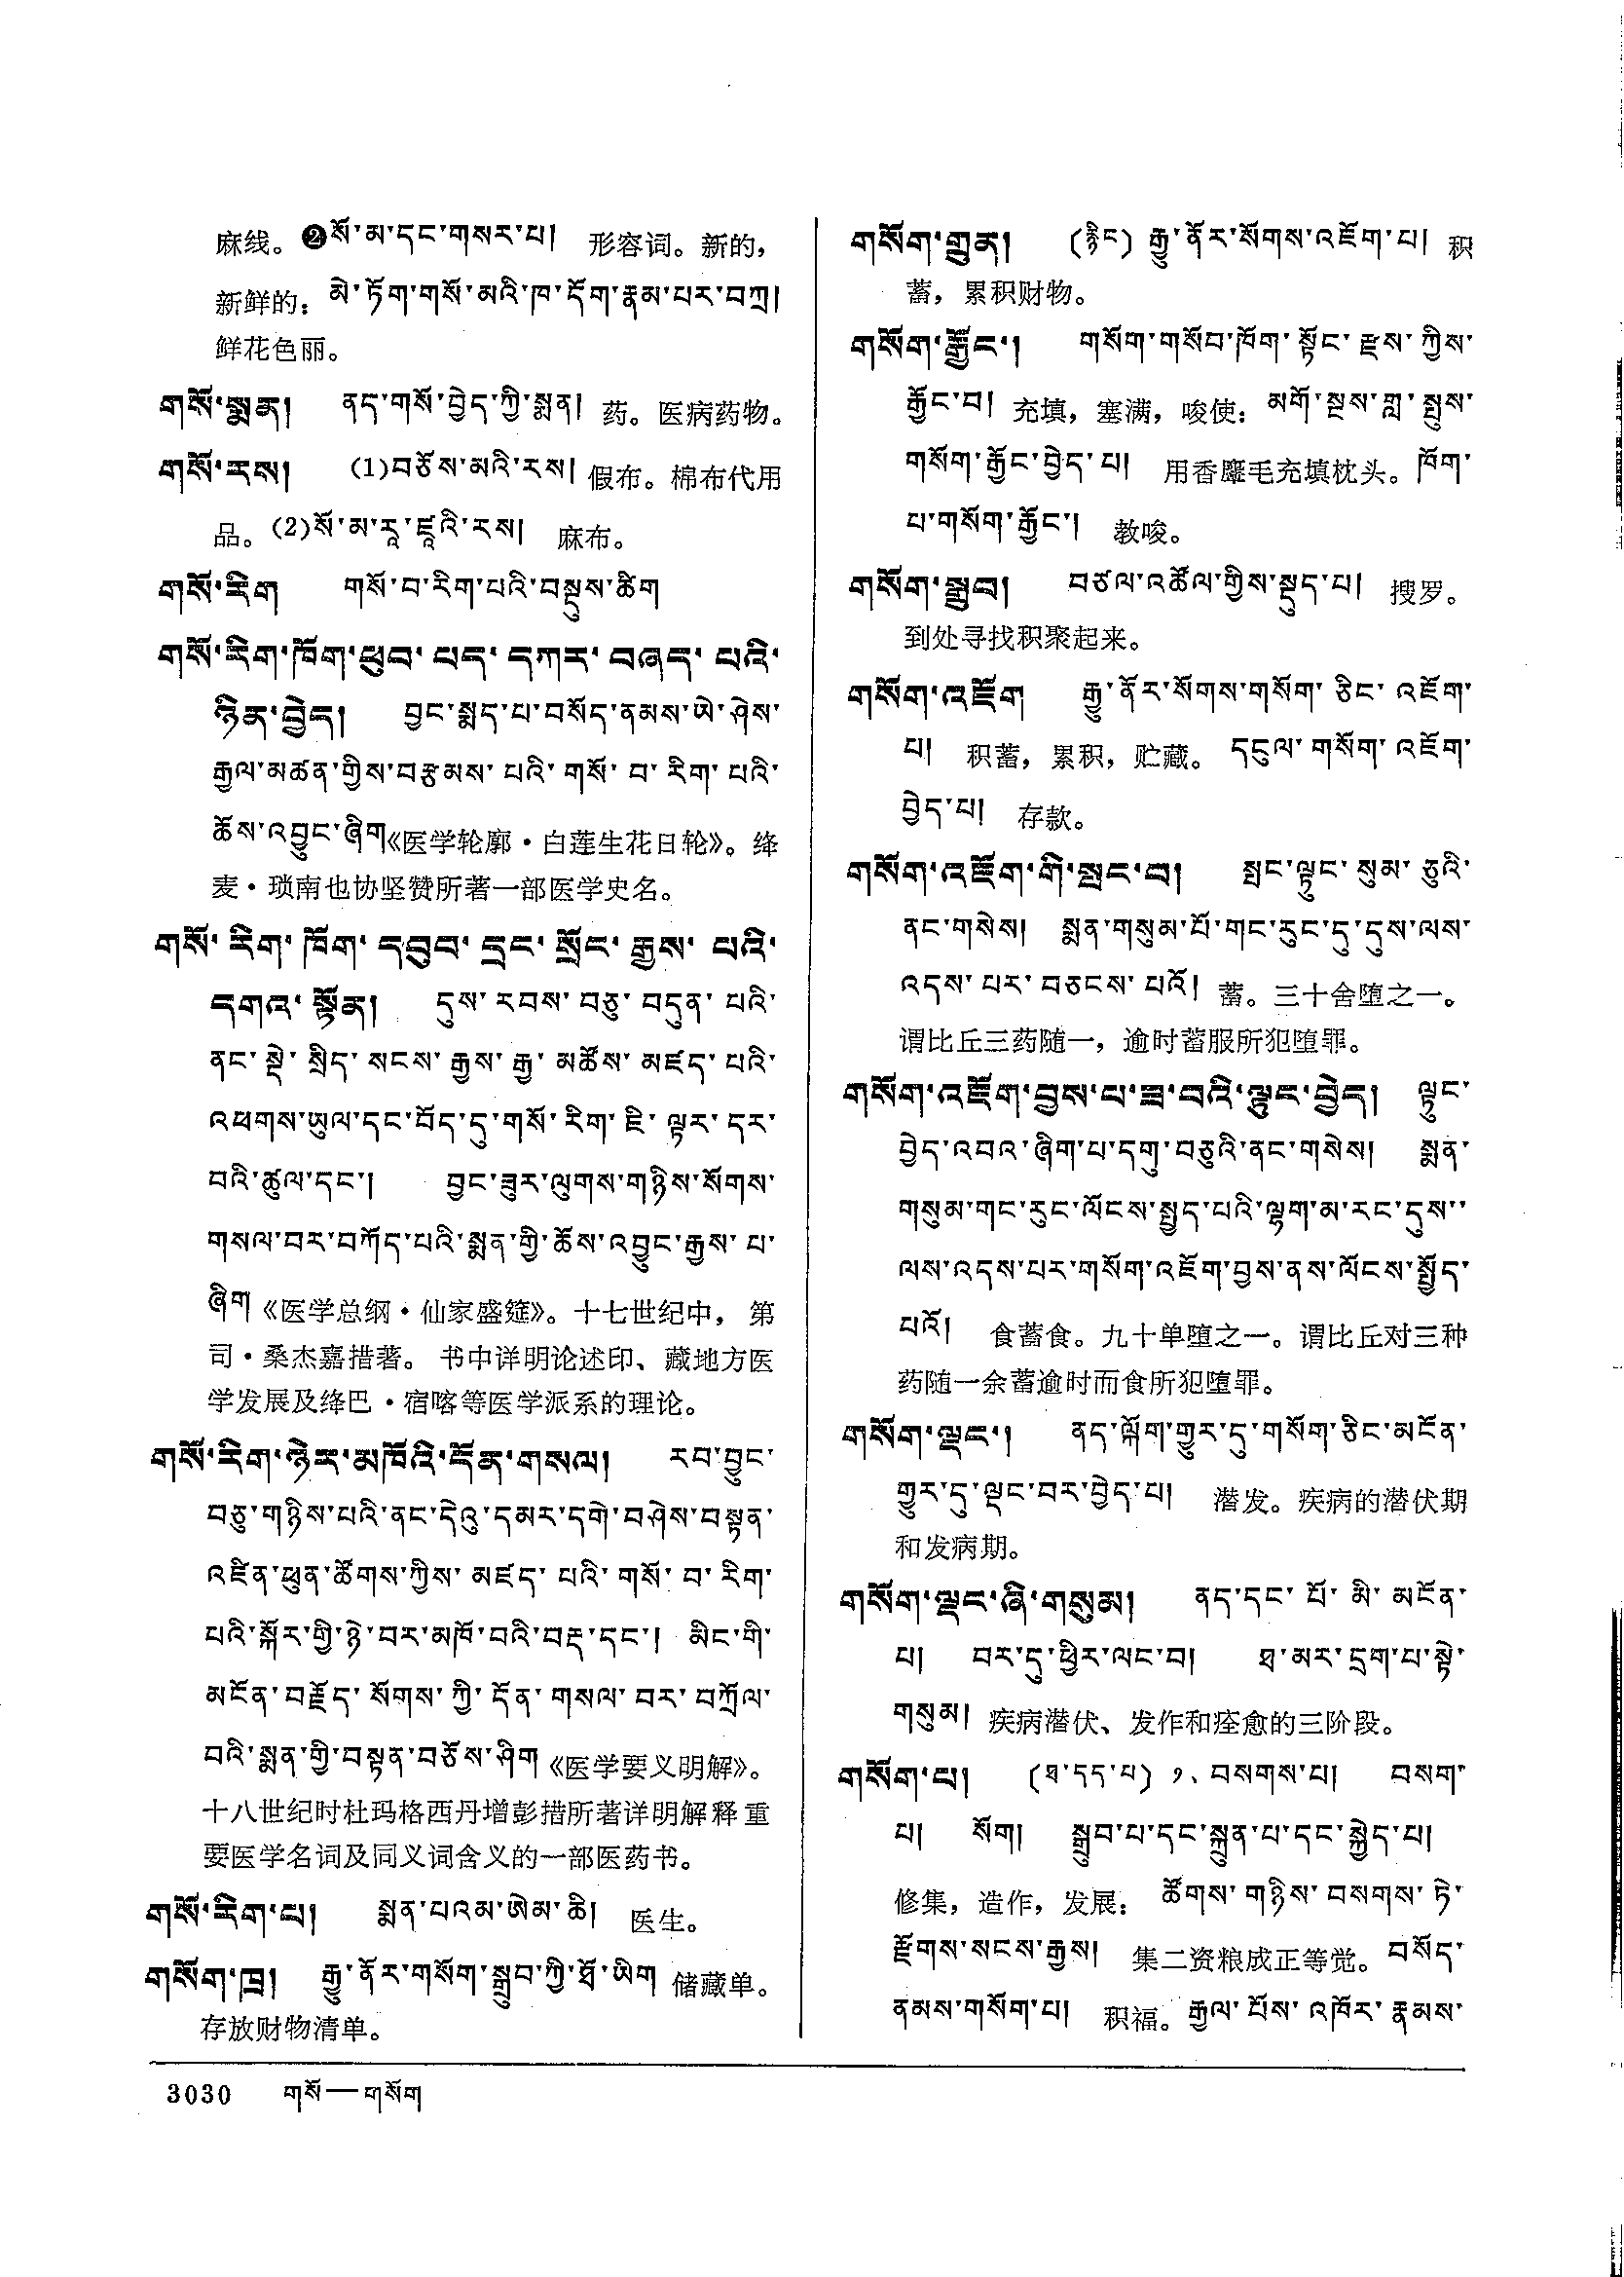 麻线。❷སོ་མ་དང་གསར་པ། 形容词。新的，
新鲜的：མེ་ཏོག་གསོ་མའི་ཁ་དོག་རྣམ་པར་བཀྲ།
鲜花色丽。
གསོ་སྨན། ནད་གསོ་བྱེད་ཀྱི་སྨན། 药。医病药物。
གསོ་རས། (1)བཅོས་མའི་རས། 假布。棉布代用
品。(2)སོ་མ་རཱ་ཛཱའི་རས། 麻布。
གསོ་རིག གསོ་བ་རིག་པའི་བསྡུས་ཚིག
གསོ་རིག་ཁོག་ཕུབ་པད་དཀར་བཞད་པའི་
ཉིན་བྱེད། བྱང་སྨད་པ་བསོད་ནམས་ཡེ་ཤེས་
རྒྱལ་མཚན་གྱིས་བརྩམས་པའི་གསོ་བ་རིག་པའི་
ཆོས་འབྱུང་ཞིག《医学轮廓·白莲生花日轮》。绛
麦·琐南也协坚赞所著一部医学史名。
གསོ་རིག་ཁོག་དབུབ་དྲང་སྲོང་རྒྱས་པའི་
དགའ་སྟོན། དུས་རབས་བཅུ་བདུན་པའི་
ནང་སྡེ་སྲིད་སངས་རྒྱས་རྒྱ་མཚོས་མཛད་པའི་
འཕགས་ཡུལ་དང་བོད་དུ་གསོ་རིག་ཇི་ལྟར་དར་
བའི་ཚུལ་དང་། བྱང་ཟུར་ལུགས་གཉིས་སོགས་
གསལ་བར་བཀོད་པའི་སྨན་གྱི་ཆོས་འབྱུང་རྒྱས་པ་
ཞིག《医学总纲·仙家盛筵》。十七世纪中，第
司·桑杰嘉措著。书中详明论述印、藏地方医
学发展及绛巴·宿喀等医学派系的理论。
གསོ་རིག་ཉེར་མཁོའི་དོན་གསལ། རབ་བྱུང་
བཅུ་གཉིས་པའི་ནང་དེའུ་དམར་དགེ་བཤེས་བསྟན་
འཛིན་ཕུན་ཚོགས་ཀྱིས་མཛད་པའི་གསོ་བ་རིག་
པའི་སྐོར་གྱི་ཉེ་བར་མཁོ་བའི་བརྡ་དང་། མིང་གི་
མངོན་བརྗོད་སོགས་ཀྱི་དོན་གསལ་བར་བཀྲོལ་
བའི་སྨན་གྱི་བསྟན་བཅོས་ཤིག《医学要义明解》。
十八世纪时杜玛格西丹增彭措所著详明解释重
要医学名词及同义词含义的一部医药书。
གསོ་རིག་པ། སྨན་པའམ་ཨེམ་ཆི། 医生。
གསོག་ཁྲ། རྒྱུ་ནོར་གསོག་སྒྲུབ་ཀྱི་ཐོ་ཡིག 储藏单。
存放财物清单。
གསོག་གྲུན། (རྙིང) རྒྱུ་ནོར་སོགས་འཇོག་པ། 积
蓄，累积财物。
གསོག་རྒྱོང་། གསོག་གསོབ་ཁོག་སྟོང་རྫས་ཀྱིས་
རྒྱོང་བ། 充填，塞满，唆使：མགོ་སྔས་གླ་སྤུས་
གསོག་རྒྱོང་བྱེད་པ། 用香麞毛充填枕头。ཁོག་
པ་གསོག་རྒྱོང་། 教唆。
གསོག་སྒྲུབ། བཙལ་འཚོལ་གྱིས་སྡུད་པ། 搜罗。
到处寻找积聚起来。
གསོག་འཇོག རྒྱུ་ནོར་སོགས་གསོག་ཅིང་འཇོག་
པ། 积蓄，累积，贮藏。དངུལ་གསོག་འཇོག་
བྱེད་པ། 存款。
གསོག་འཇོག་གི་སྤང་བ། སྤང་ལྟུང་སུམ་ཅུའི་
ནང་གསེས། སྨན་གསུམ་པོ་གང་རུང་དུ་དུས་ལས་
འདས་པར་བཅངས་པའོ། 蓄。三十舍堕之一。
谓比丘三药随一，逾时蓄服所犯堕罪。
གསོག་འཇོག་བྱས་པ་ཟ་བའི་ལྟུང་བྱེད། ལྟུང་
བྱེད་འབའ་ཞིག་པ་དགུ་བཅུའི་ནང་གསེས། སྨན་
གསུམ་གང་རུང་ལོངས་སྤྱད་པའི་ལྷག་མ་རང་དུས་
ལས་འདས་པར་གསོག་འཇོག་བྱས་ནས་ལོངས་སྤྱོད་
པའོ། 食蓄食。九十单堕之一。谓比丘对三种
药随一余蓄逾时而食所犯堕罪。
གསོག་ལྡང་། ནད་ལྐོག་གྱུར་དུ་གསོག་ཅིང་མངོན་
གྱུར་དུ་ལྡང་བར་བྱེད་པ། 潜发。疾病的潜伏期
和发病期。
གསོག་ལྡང་ཞི་གསུམ། ནད་དང་པོ་མི་མངོན་
པ། བར་དུ་ཕྱིར་ལང་བ། ཐ་མར་དྲག་པ་སྟེ་
གསུམ། 疾病潜伏、发作和痊愈的三阶段。
གསོག་པ། (ཐ་དད་པ) ༡. བསགས་པ། བསག་
པ། སོག། སྒྲུབ་པ་དང་སྐྲུན་པ་དང་སྐྱེད་པ།
修集，造作，发展：ཚོགས་གཉིས་བསགས་ཏེ་
རྫོགས་སངས་རྒྱས། 集二资粮成正等觉。བསོད་
ནམས་གསོག་པ། 积福。རྒྱལ་པོས་འཁོར་རྣམས་
3030 གསོ—གསོག